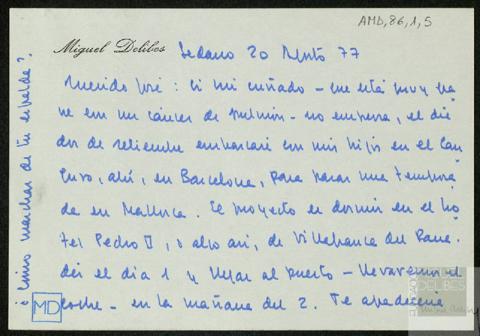 AMD,86,1,5
Miguel Delibes
Sedano 20 Agosto 77
Querido José: Si mi cuñado – que está muy gra
ve con un cáncer de pulmón – no empeora, el día
dos de setiembre embarcaré con mis hijos en el Can
guro, ahí, en Barcelona, para pasar una tempora
da en Mallorca. El proyecto es dormir en el ho
tel Pedro III, o algo así, de Villafranca del Pana
dés el día 1 y llegar al puerto – llevaremos el
coche – en la mañana del 2. Te agradecería
¿Cómo marchas de tu espalda?
MD
DELIBES